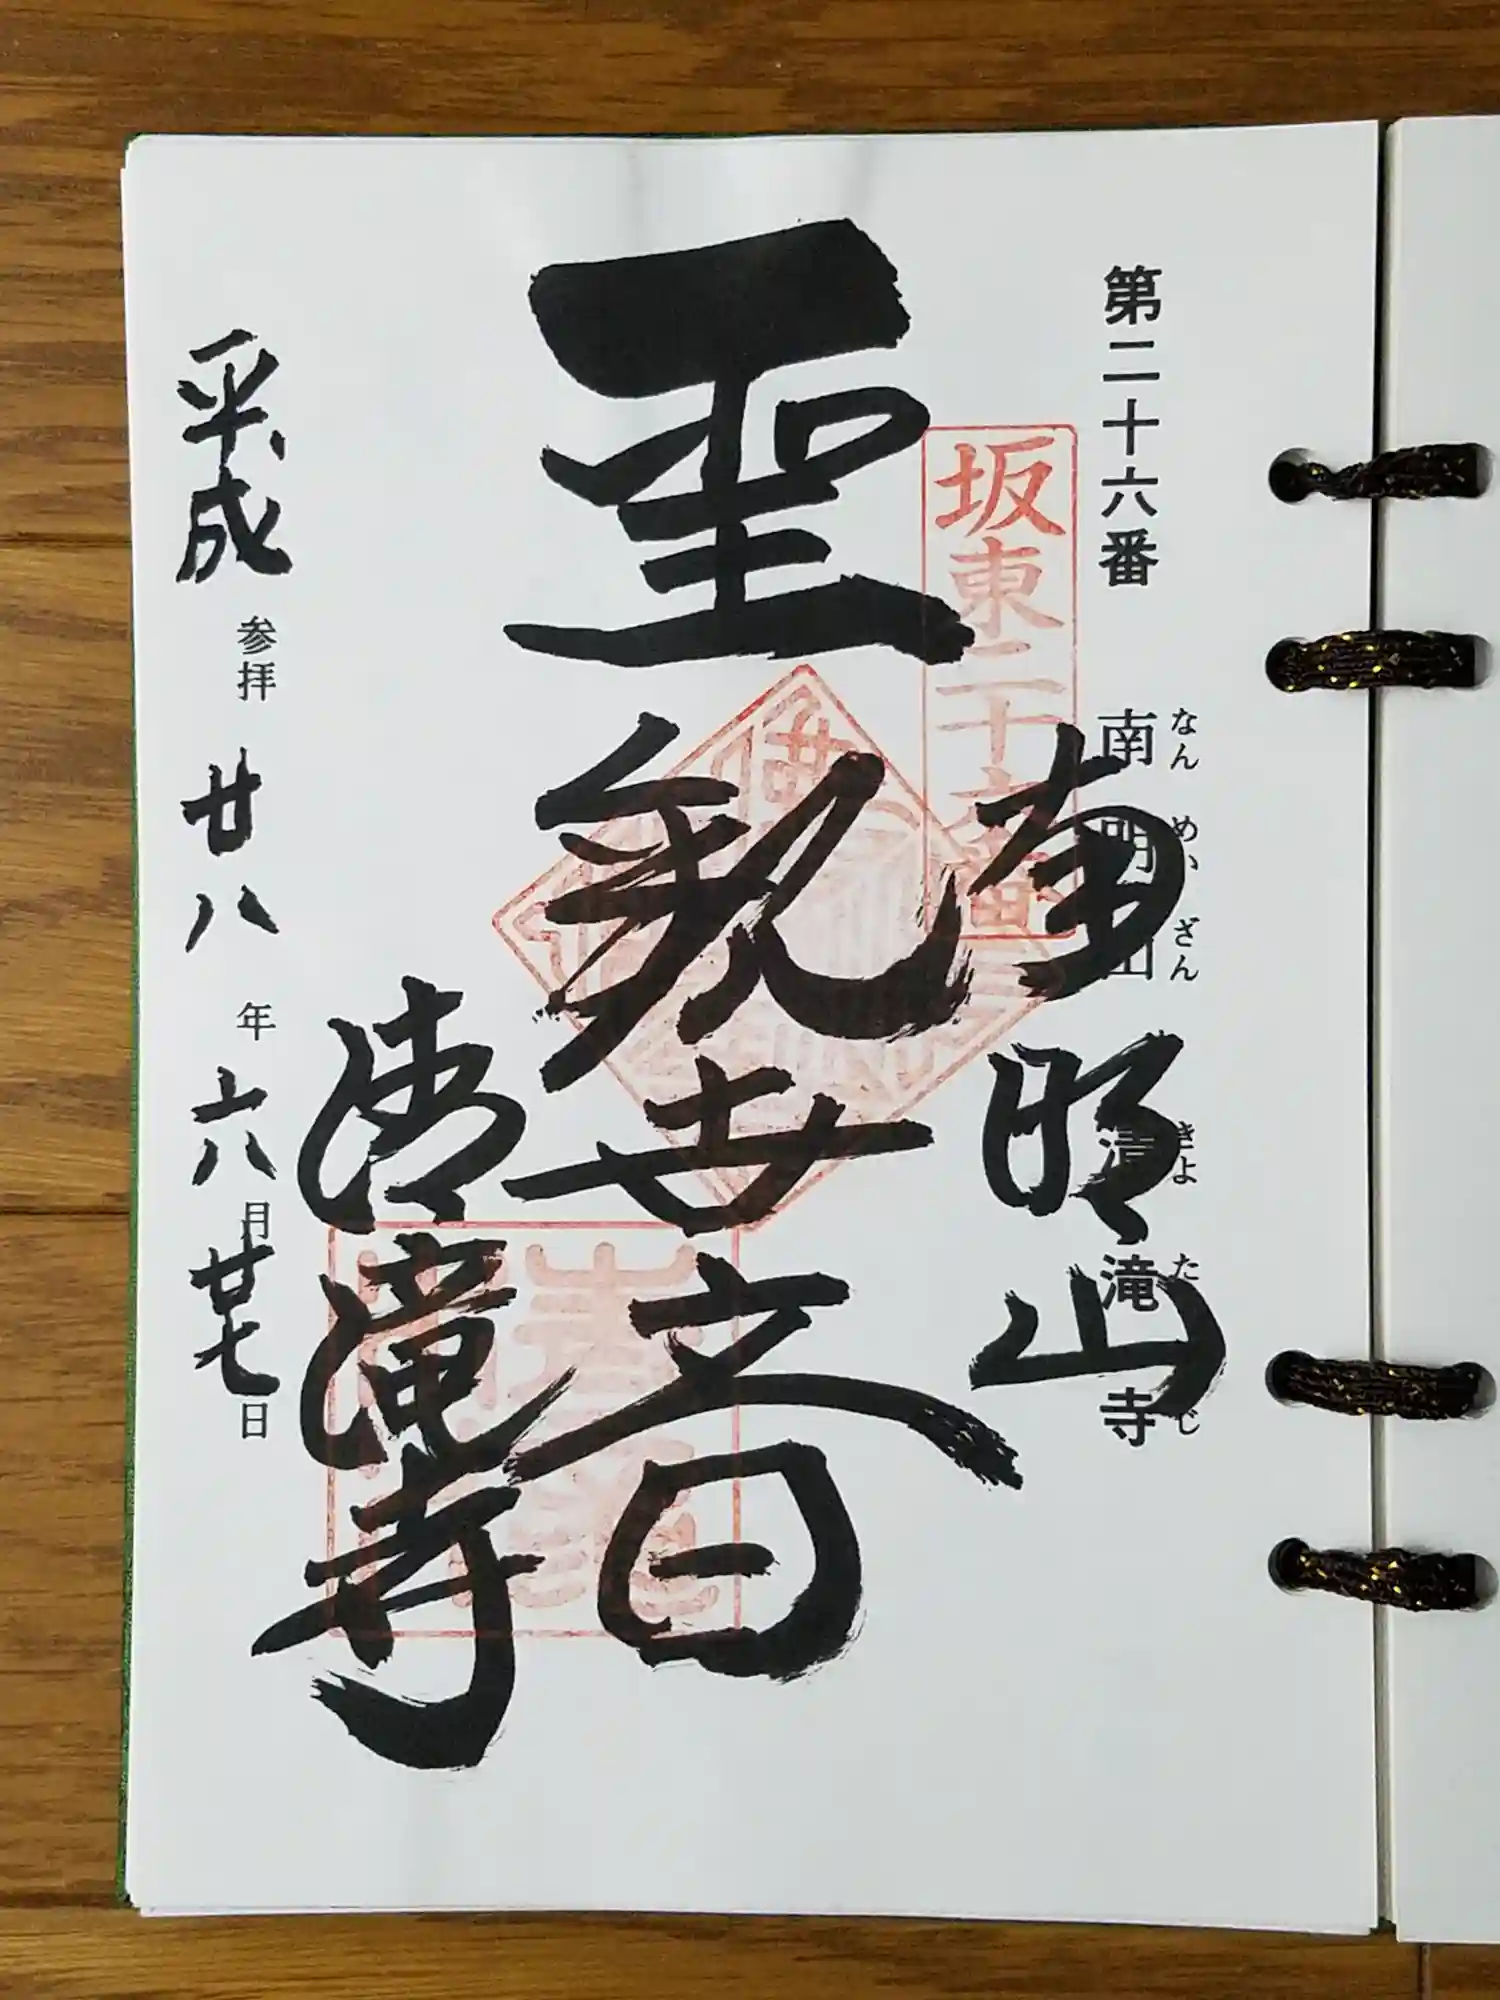 第二十六番
南明山 清滝寺
なんめいざん きよたきじ
坂東二十六番
南明山
聖観世音
清滝寺
平成廿八年六月廿七日
参拝